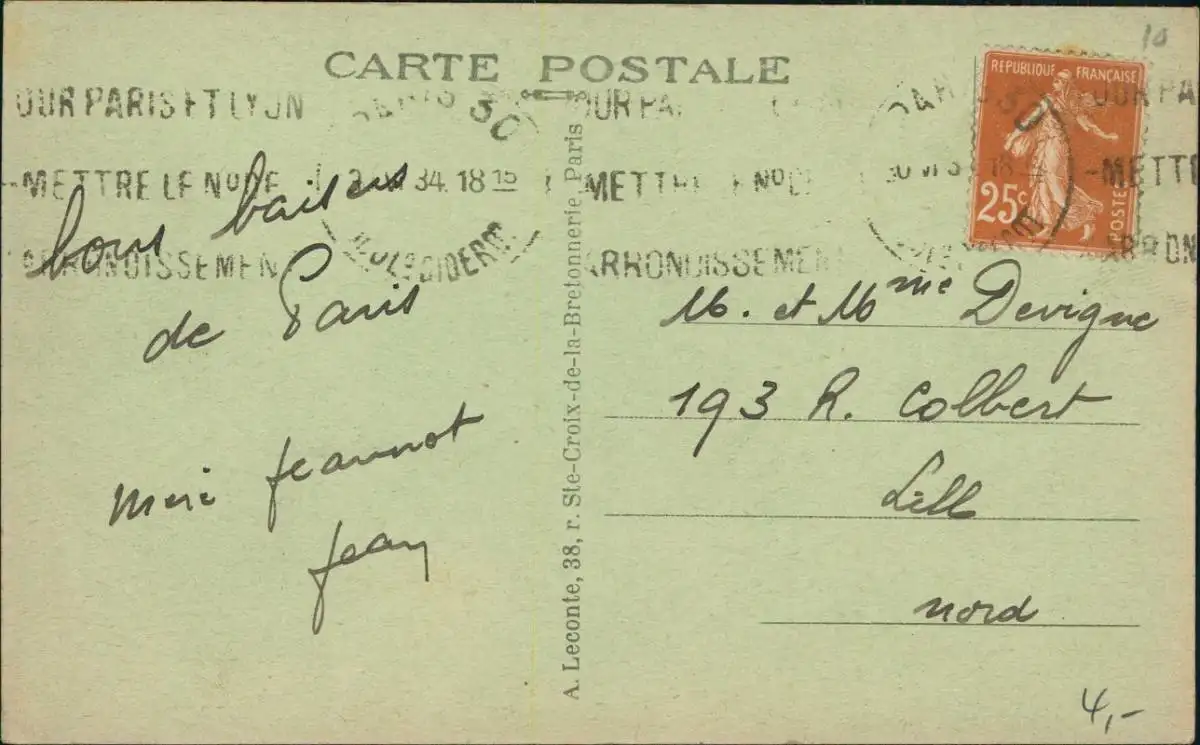 CARTE POSTALE
10
OUR PARIS ET LYON
PARIS 50
OUR PA
OUR PA
METTRE LE No DE
34. 18 15
METTRE LE No DE
18
METT
ARRONDISSEMEN
ARRONDISSEMEN
ARRON
REPUBLIQUE FRANÇAISE
25c
POSTES
bons baisers
de Paris
Mimi Jeannot
Jean
A. Leconte, 38, r. Ste-Croix-de-la-Bretonnerie Paris
M. et Mme Devigne
193 R. Colbert
Lille
Nord
4,-